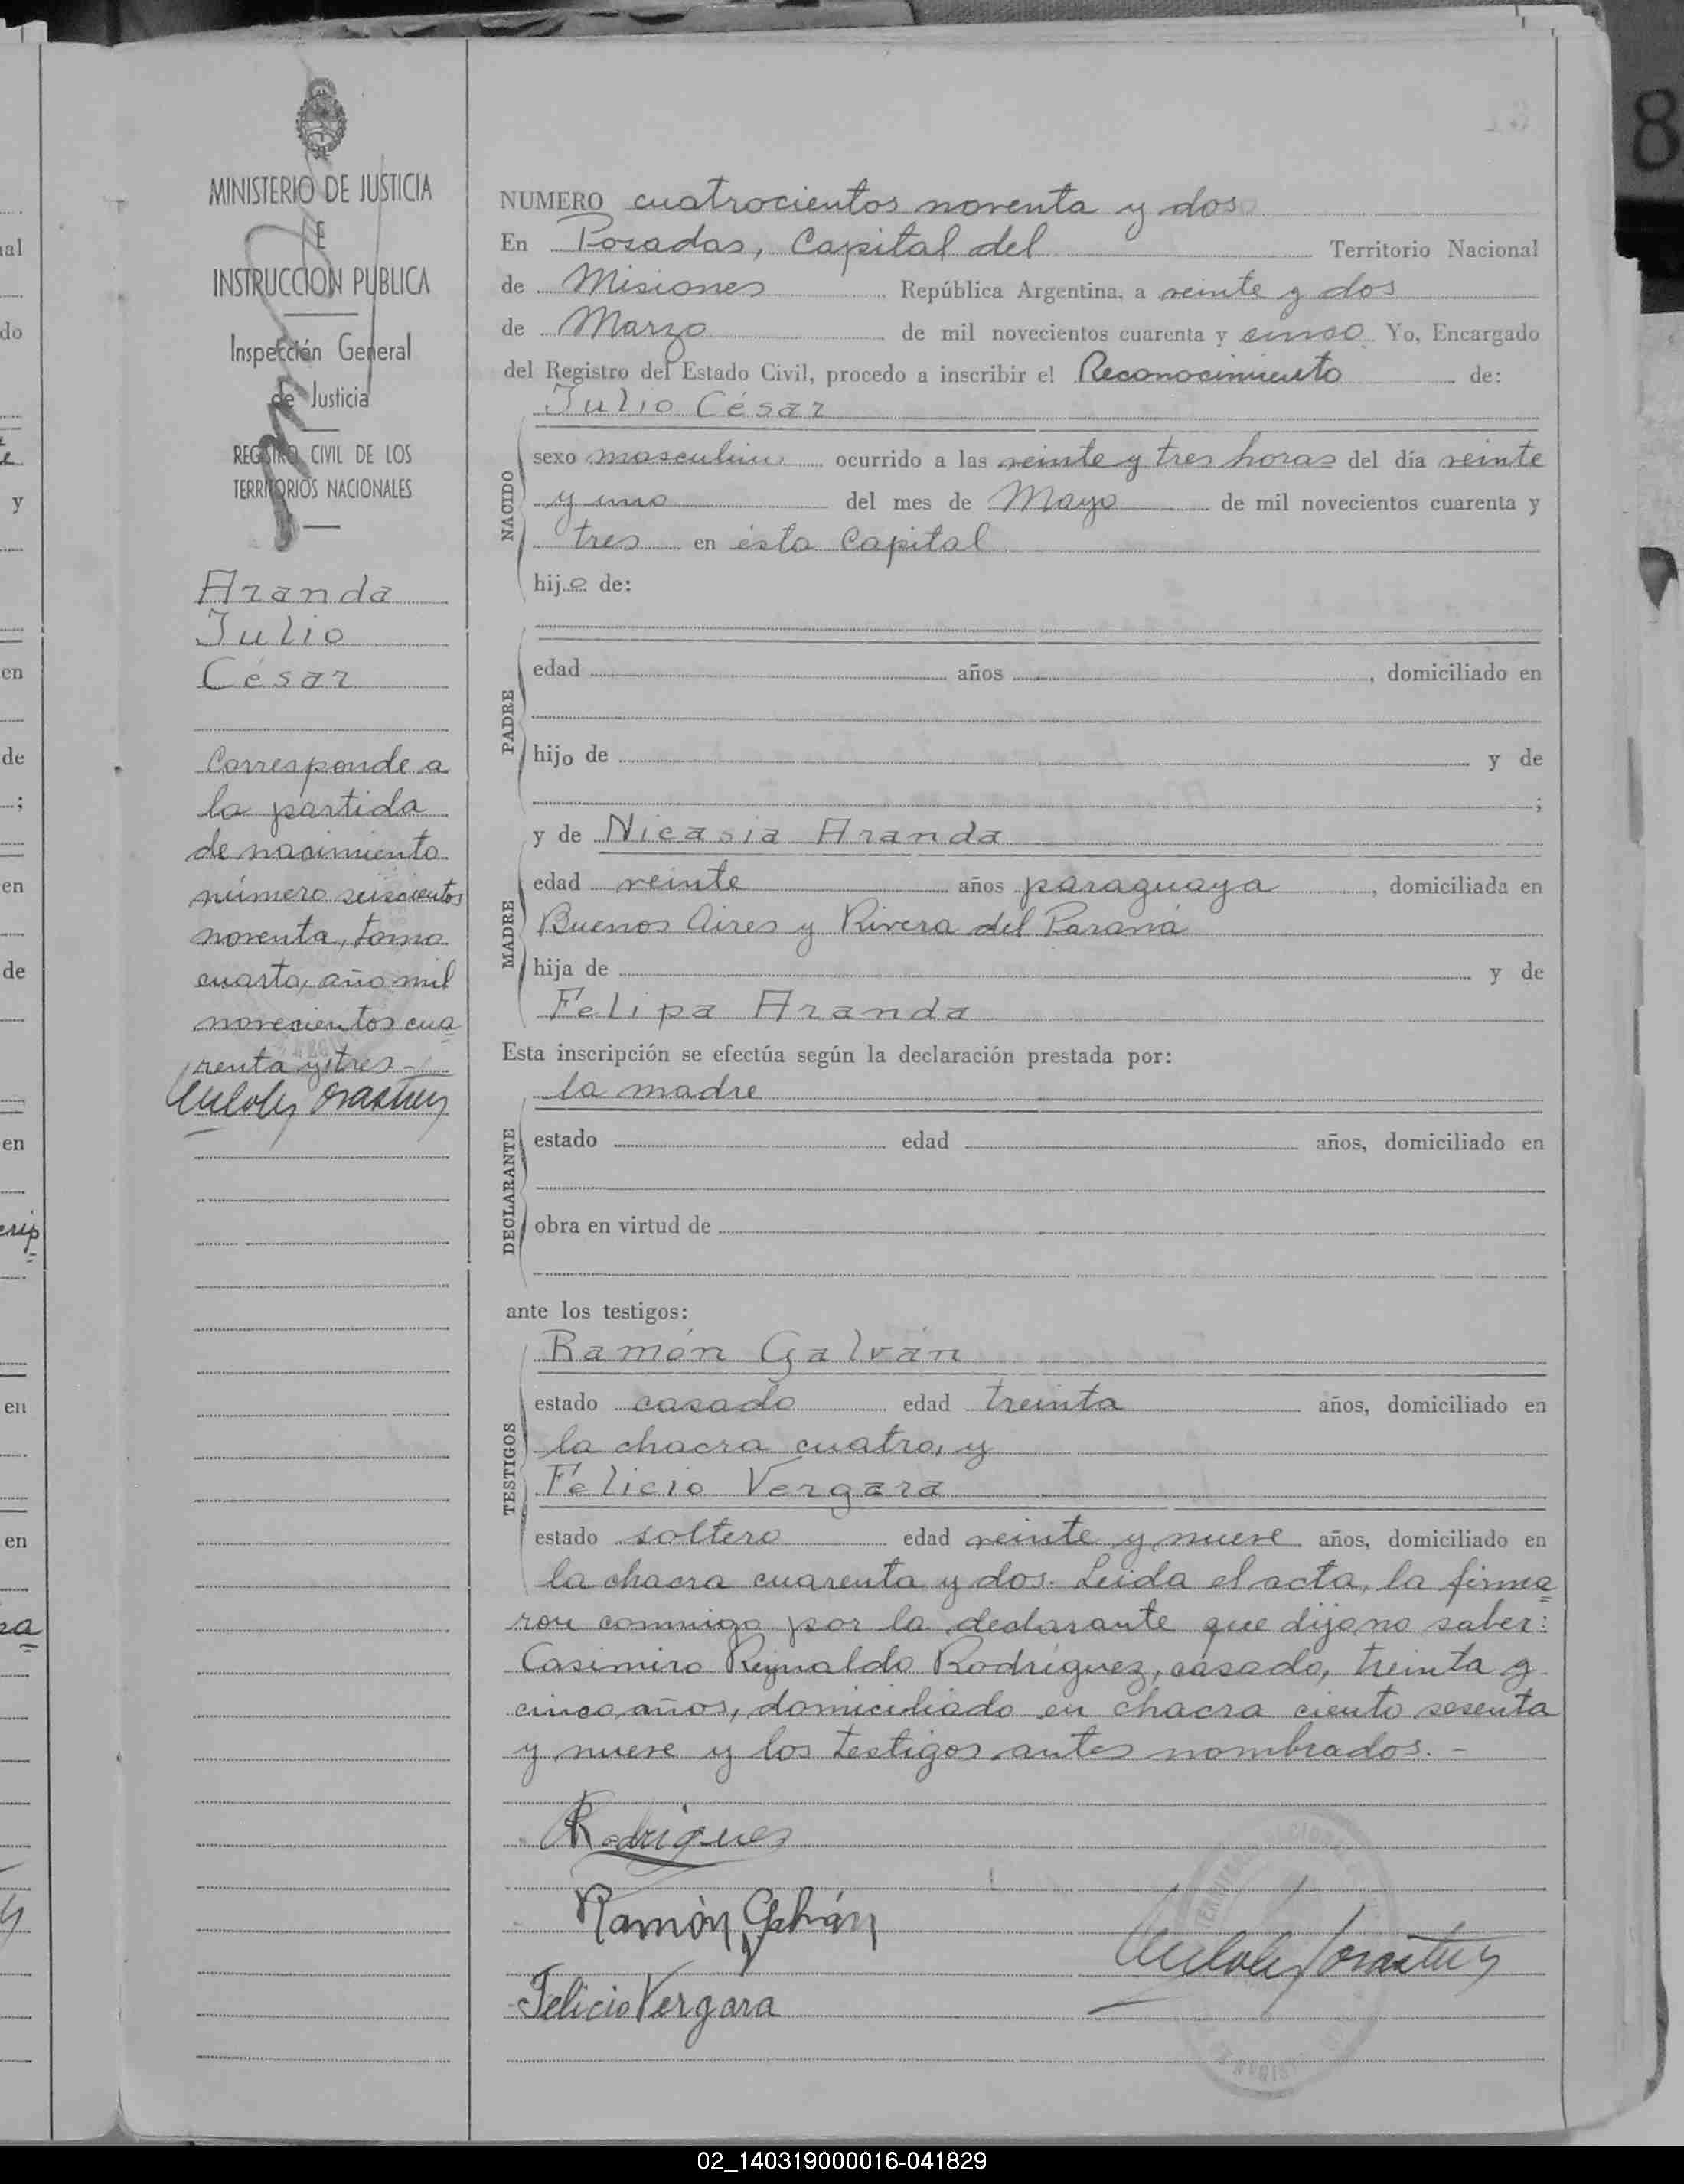 MINISTERIO DE JUSTICIA
E
INSTRUCCION PUBLICA
Inspección General
de Justicia
REGISTRO CIVIL DE LOS
TERRITORIOS NACIONALES
Aranda
Julio
César
Corresponde a
la partida
de nacimiento
número seiscientos
noventa, tomo
cuarto, año mil
novecientos cua
renta y tres -
NUMERO cuatrocientos noventa y dos
En Posadas, Capital del Territorio Nacional
de Misiones República Argentina, a veinte y dos
de Marzo de mil novecientos cuarenta y cinco Yo, Encargado
del Registro del Estado Civil, procedo a inscribir el Reconocimiento de:
Julio César
NACIDO
sexo masculino ocurrido a las veinte y tres horas del día veinte
y uno del mes de Mayo de mil novecientos cuarenta y
tres en ésta Capital
hijo de:
PADRE
edad años , domiciliado en
hijo de y de
;
y de Nicasia Aranda
MADRE
edad veinte años paraguaya , domiciliada en
Buenos Aires y Rivera del Paraná
hija de y de
Felipa Aranda
Esta inscripción se efectúa según la declaración prestada por:
la madre
DECLARANTE
estado edad años, domiciliado en
obra en virtud de
ante los testigos:
TESTIGOS
Ramón Galván
estado casado edad treinta años, domiciliado en
la chacra cuatro, y
Felicio Vergara
estado soltero edad veinte y nueve años, domiciliado en
la chacra cuarenta y dos. Leida el acta, la firma
ron conmigo por la declarante que dijo no saber:
Casimiro Reynaldo Rodríguez, casado, treinta y
cinco años, domiciliado en chacra ciento sesenta
y nueve y los testigos antes nombrados. -
Rodrigues
Ramón Galván
Felicio Vergara
8
02_140319000016-041829